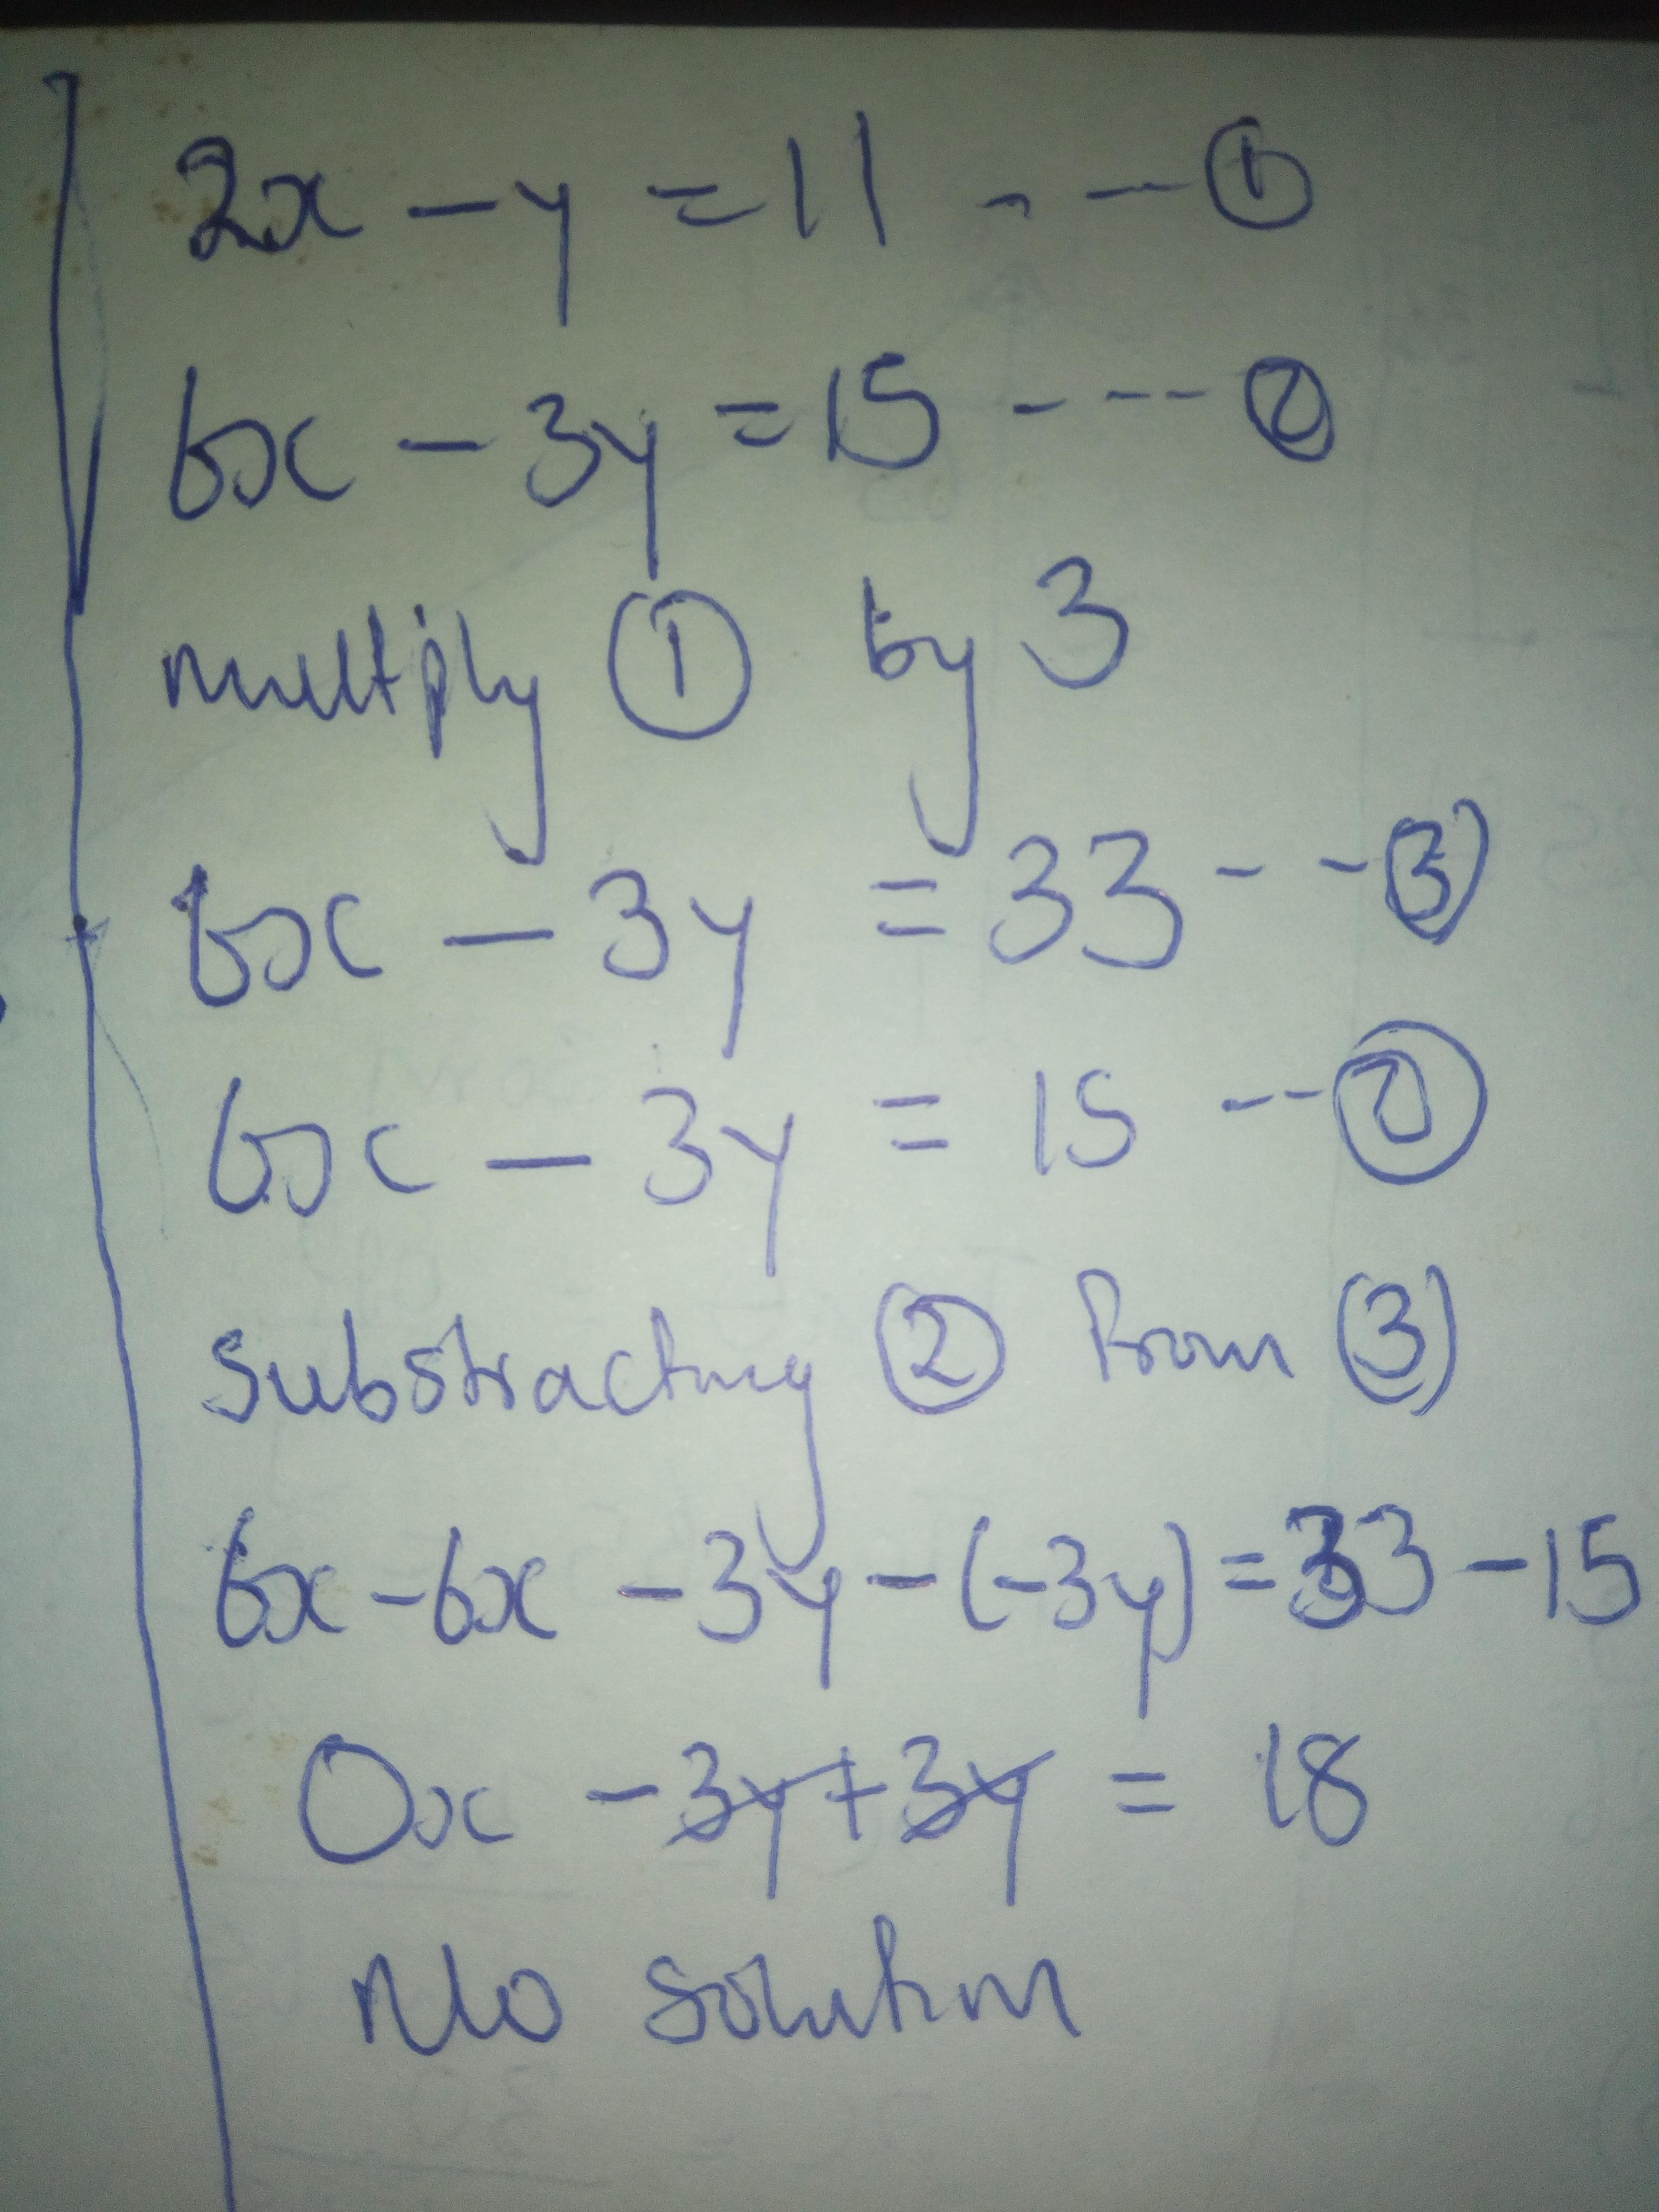 2x - y = 11 - - - ①
6x - 3y = 15 - - - - ②
multiply ① by 3
6x - 3y = 33 - - ③
6x - 3y = 15 - - - ②
substracting ② from ③
6x - 6x - 3y - (-3y) = 33 - 15
0x - 3y + 3y = 18
No solution